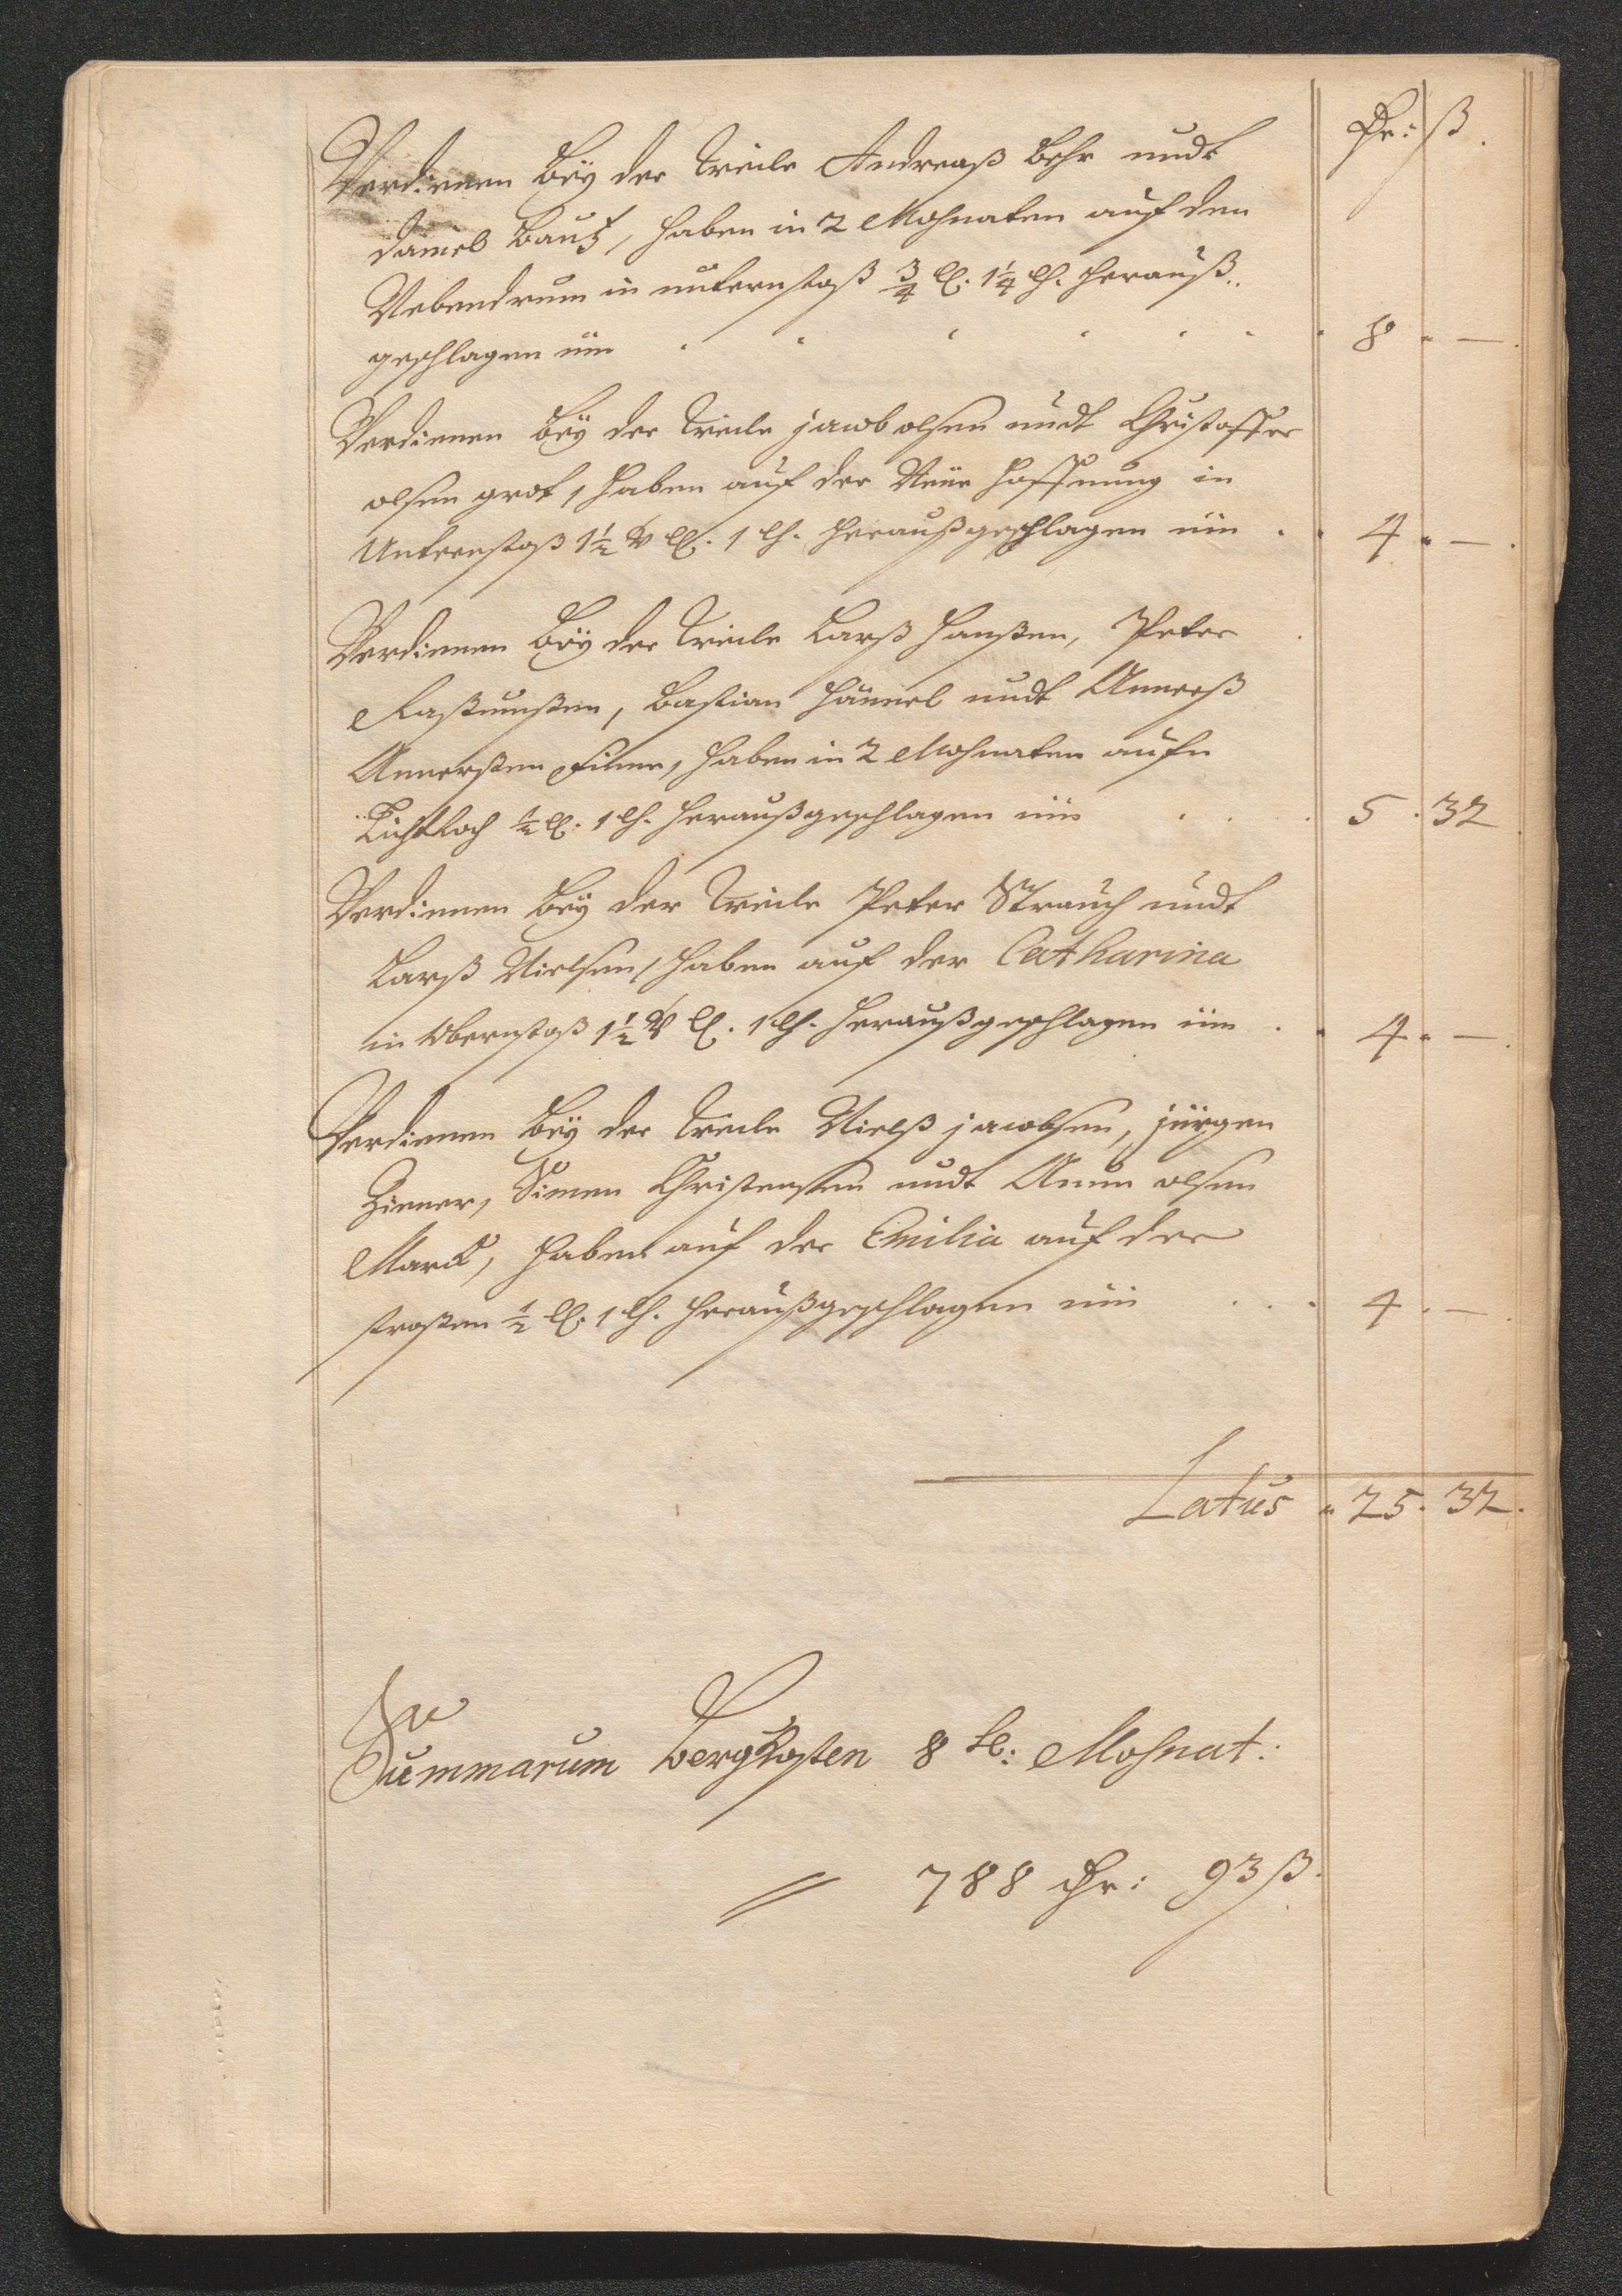 Thr: ß.
Verdienen beÿ der Weile Andreaß Behr undt
Daniel Bautz, haben in 2 Mohnaten auf den
Nebendrum in unternstoß ¾ l: 1¼ lh. herauß..
geschlagen um 8 . — .
Verdienen beÿ der Weile jacob olsen undt Christoffer
olsen grot, haben auf der Neue Hoffnung in
Unternstoß 1½ l. 1 lh. heraußgeschlagen um . . 4 . — .
Verdienen beÿ der Weile Larß Hanßen, Peter
Raßmußen, Bastian Hännel undt Annerß
Annerßen, haben in 2 Mohnaten aufn
Lichtloch ½ l: 1 lh. heraußgeschlagen um . . . 5 . 32
Verdienen beÿ der Weile Peter Strauch undt
Larß Nielsen, haben auf der Catharina
in Obernstoß 1½ l. 1 lh. heraußgeschlagen um . . 4 . — .
Verdienen beÿ der Weile Nielß jacobsen, jürgen
Ziener, Simen Christensen undt Anun olsen
Marck, haben auf der Emilia auf der
stroßen ½ l. 1 lh. heraußgeschlagen um . . . 4 . —
Latus . 25 . 32 .
Summarum bergkosten 8 te: Mohnat:
= 788 thr: 93 ß.